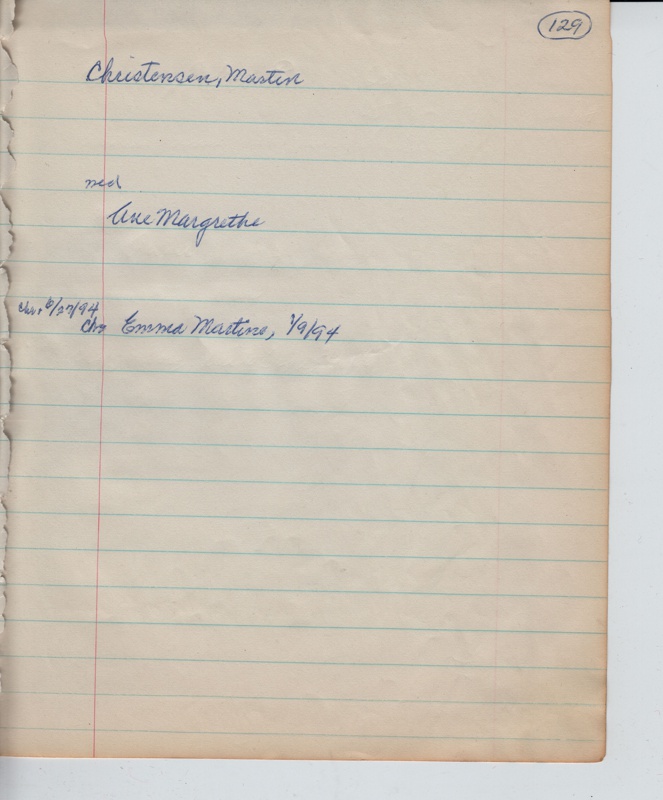 129
Christensen, Martin
med
Ane Margrethe
Chr. 6/27/94
Ch. Emma Martine, 1/9/94